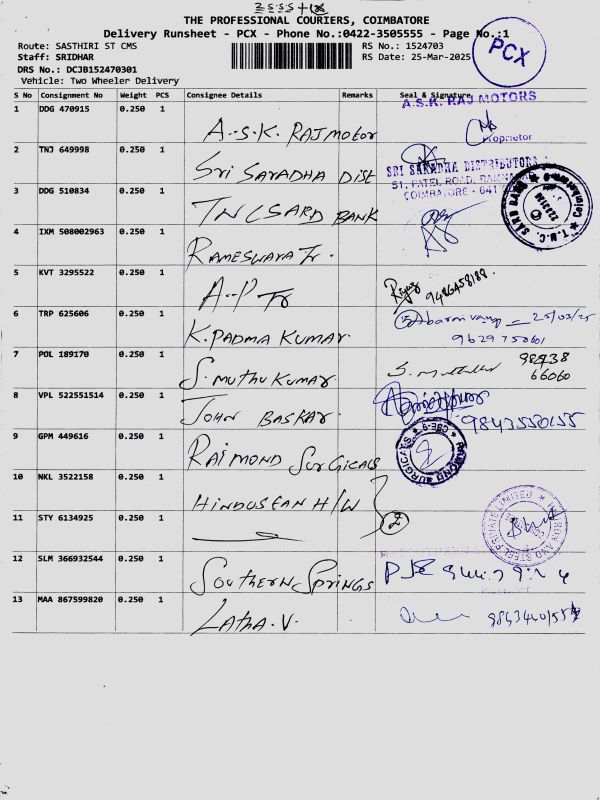 THE PROFESSIONAL COURIERS, COIMBATORE
Delivery Runsheet - PCX - Phone No.:0422-3505555 - Page No.:1
PCX
Route: SASTHIRI ST CMS
RS No.: 1524703
Staff: SRIDHAR
RS Date: 25-Mar-2025
DRS No.: DCJB152470301
Vehicle: Two Wheeler Delivery
S No Consignment No Weight PCS Consignee Details Remarks Seal & Signature
1 DDG 470915 0.250 1 A.S.K. RAJ MOTOR A.S.K. RAJ MOTORS
Proprietor
2 TNJ 649998 0.250 1 SRI SARADHA DIST SRI SARADHA DISTRIBUTORS
51, PATEL ROAD,
COIMBATORE - 641
3 DDG 510834 0.250 1 TNCSARD BANK
4 IXM 508002963 0.250 1 RAMESWARA Tr.
5 KVT 3295522 0.250 1 A.P Tr 9486458188
6 TRP 625606 0.250 1 K. PADMA KUMAR 25/03/25
9629750601
7 POL 189170 0.250 1 S. MUTHU KUMAR 98438
66060
8 VPL 522551514 0.250 1 JOHN BASKAR 9843550155
9 GPM 449616 0.250 1 RAIMOND SURGICALS RAIMOND SURGICALS CBE-9
10 NKL 3522158 0.250 1 HINDUSTAN H/W
11 STY 6134925 0.250 1 2
12 SLM 366932544 0.250 1 SOUTHERN SPRINGS
13 MAA 867599820 0.250 1 LATHA.V.